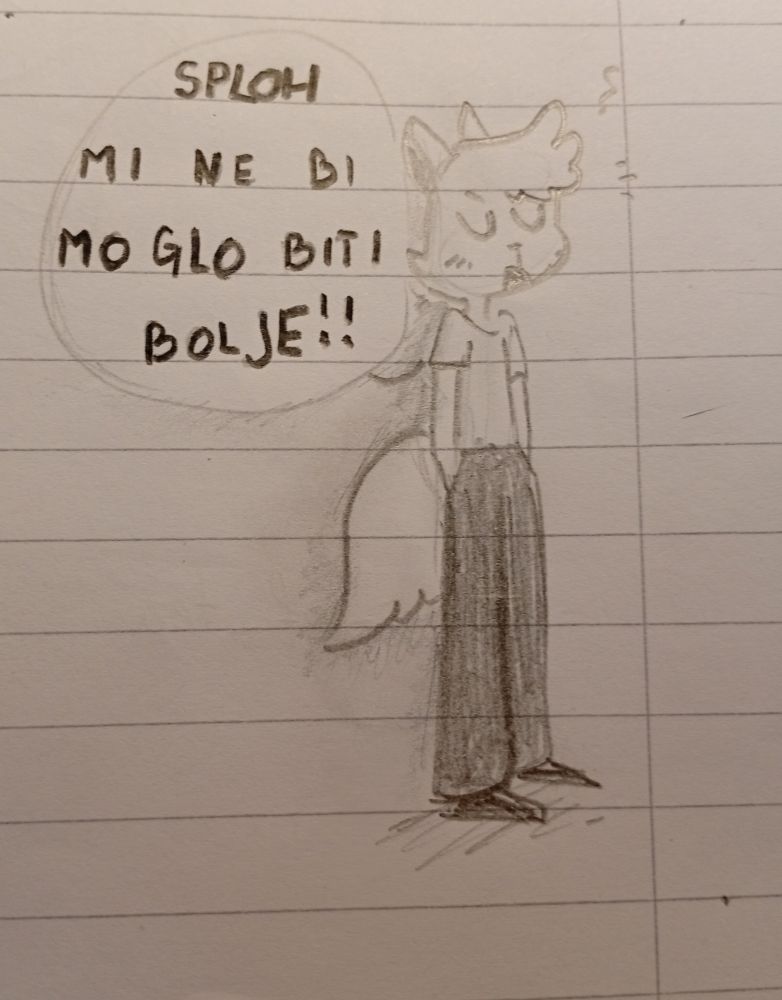 SPLOH
MI NE BI
MOGLO BITI
BOLJE!!